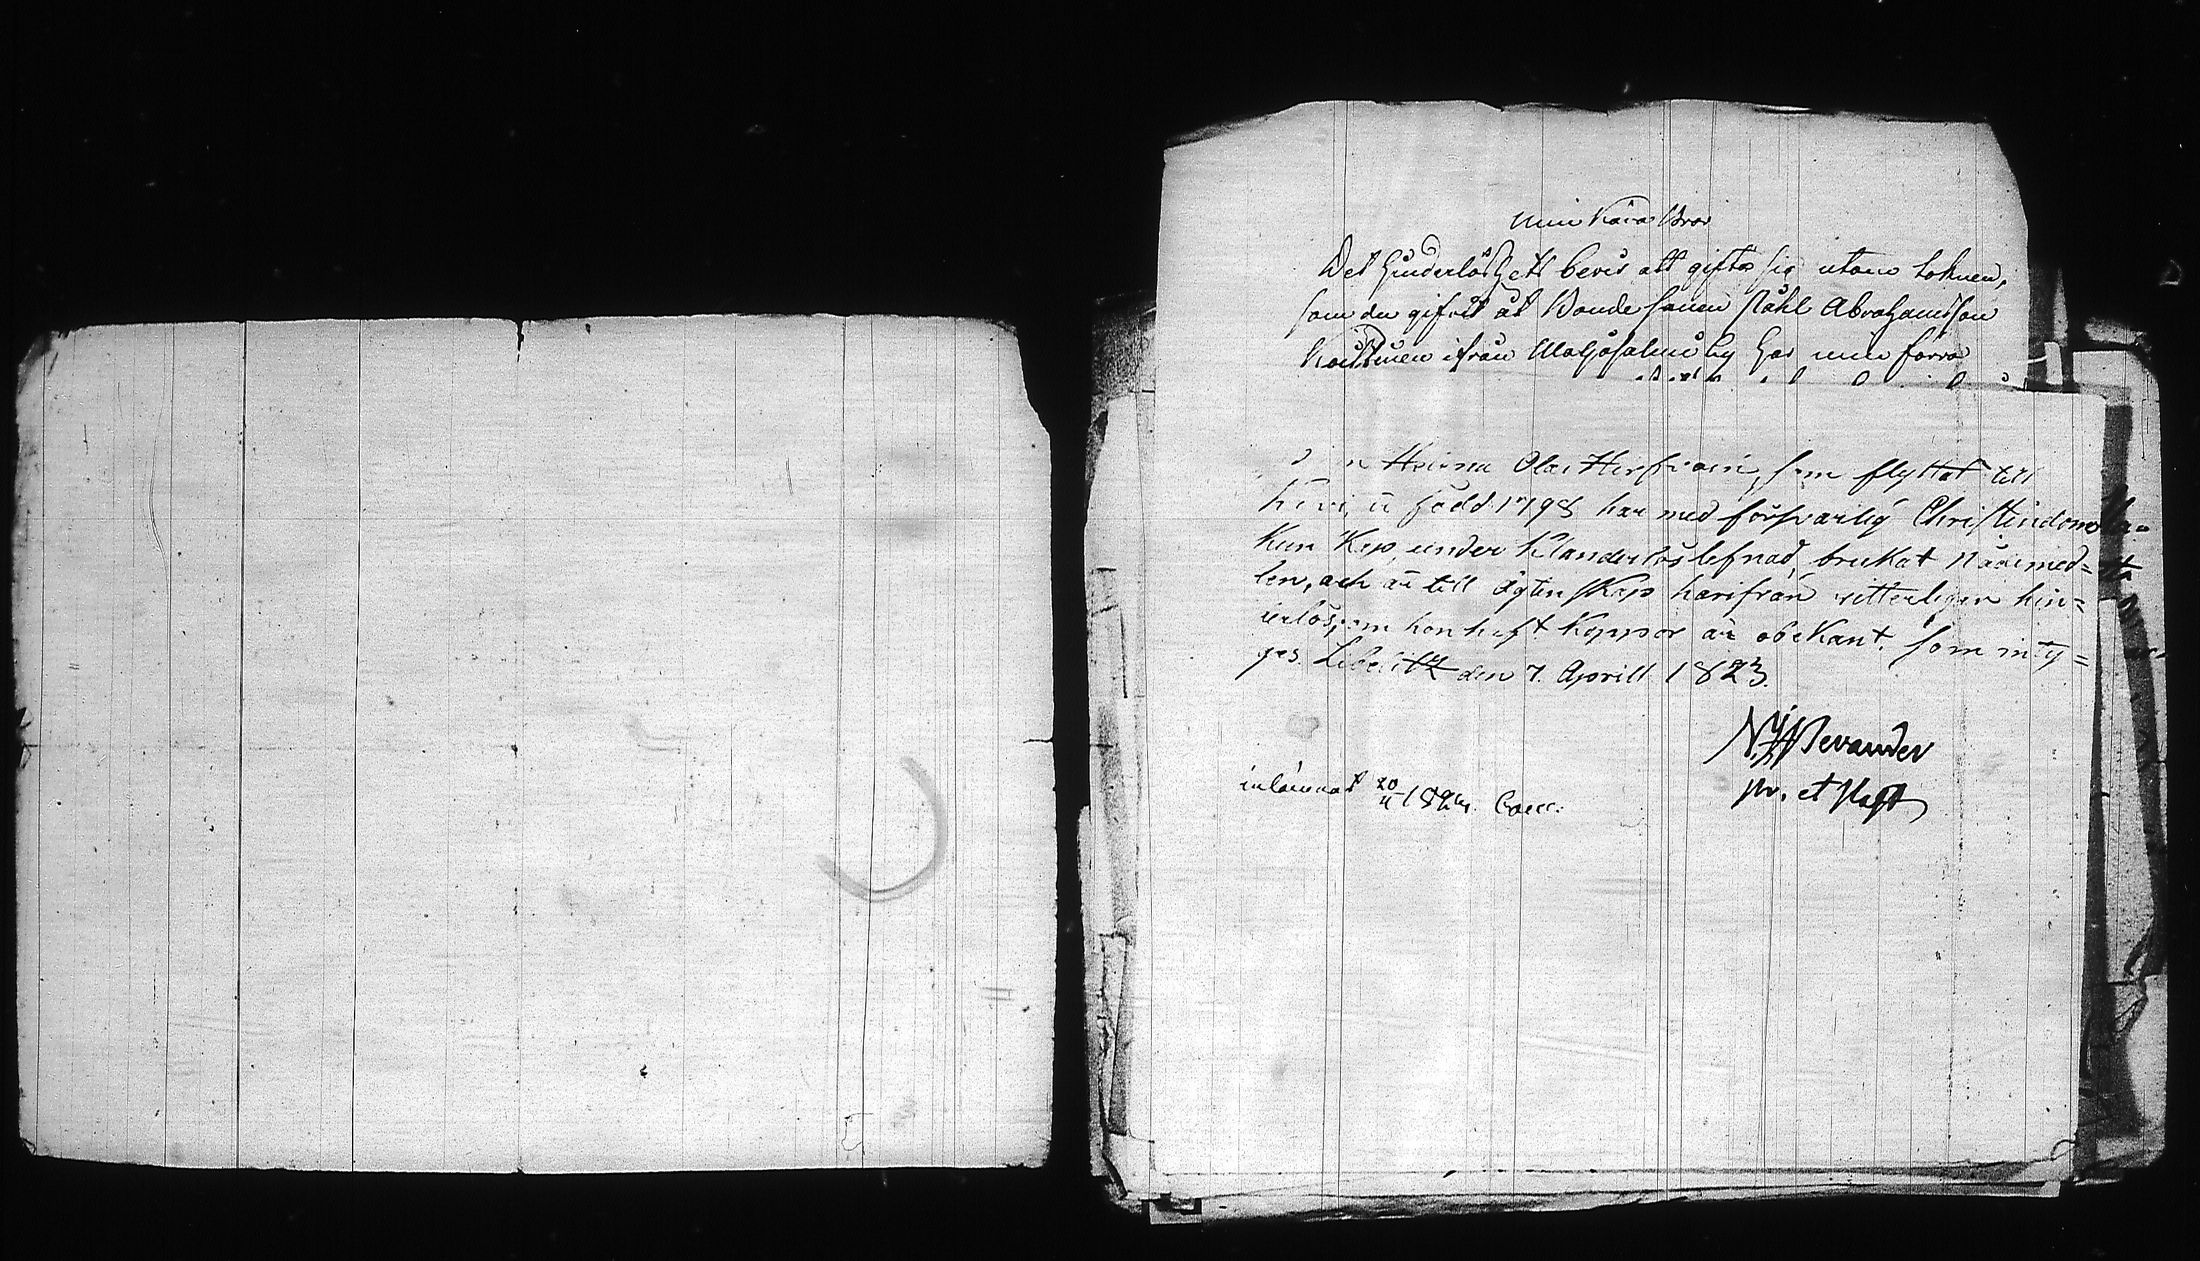 Min Kära Bror
Det hinderlöshets bevis att gifta sig utom Soknen,
som du gifvit åt Bonde sonen Påhl Abrahamsson
ifrån by har min förra
Olai som flyttat till
född 1798 har med försvarlig Christindoms
Kun Kap under Klanderlös lefnad, brukat Nådemed=
len, och är till ägtenskap härifrån vitterligen hin=
derlös, om hon haft Koppor är obekant. som inty=
gas. Libelitz den 7. Aprill 1823.
N. J. Wevander
pr. et Past
inlämnat 20/4 1824.